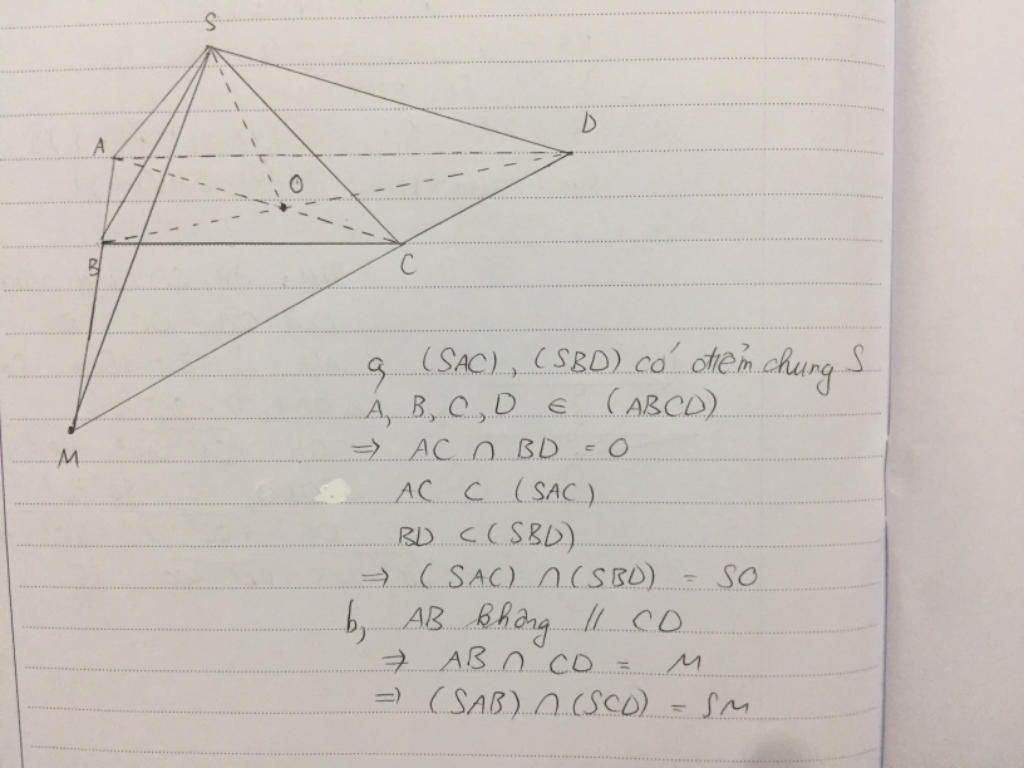 S
A
D
O
B
C
M
a, (SAC), (SBD) có điểm chung S
A, B, C, D ∈ (ABCD)
⇒ AC ∩ BD = O
AC ⊂ (SAC)
BD ⊂ (SBD)
⇒ (SAC) ∩ (SBD) = SO
b, AB không // CD
⇒ AB ∩ CD = M
⇒ (SAB) ∩ (SCD) = SM